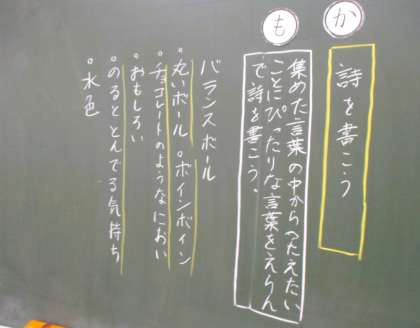 か
詩を書こう
も
集めた言葉の中からつたえたい
ことにぴったりな言葉をえらん
で詩を書こう。
バランスボール
°丸いボール °ボインボイン
°チョコレートのようなにおい
°おもしろい
°のるととんでる気持ち
°水色